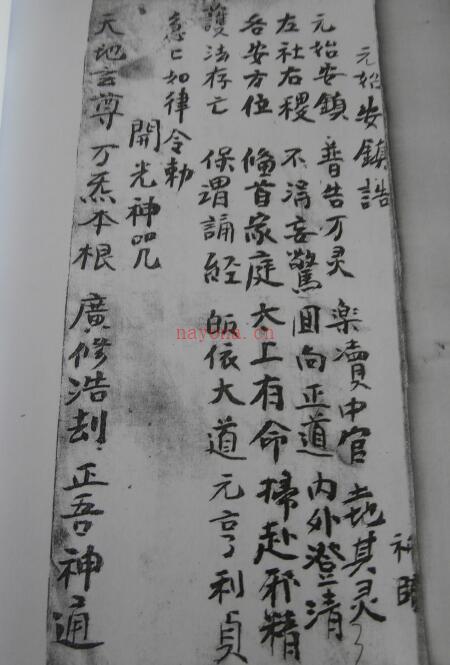 元始安鎮誥
元始安鎮 普告万灵 楽瀆中官 土地其灵
左社右稷 不淂妄驚 囬向正道 内外澄清
各安方位 俻首家庭 太上有命 掃赴邪精
護法存亡 保謂誦經 皈依大道 元亨利貞
急匕如律令勅
開光神咒
天地玄尊 万炁本根 廣修浩刼 正吾神通
nayona.cn